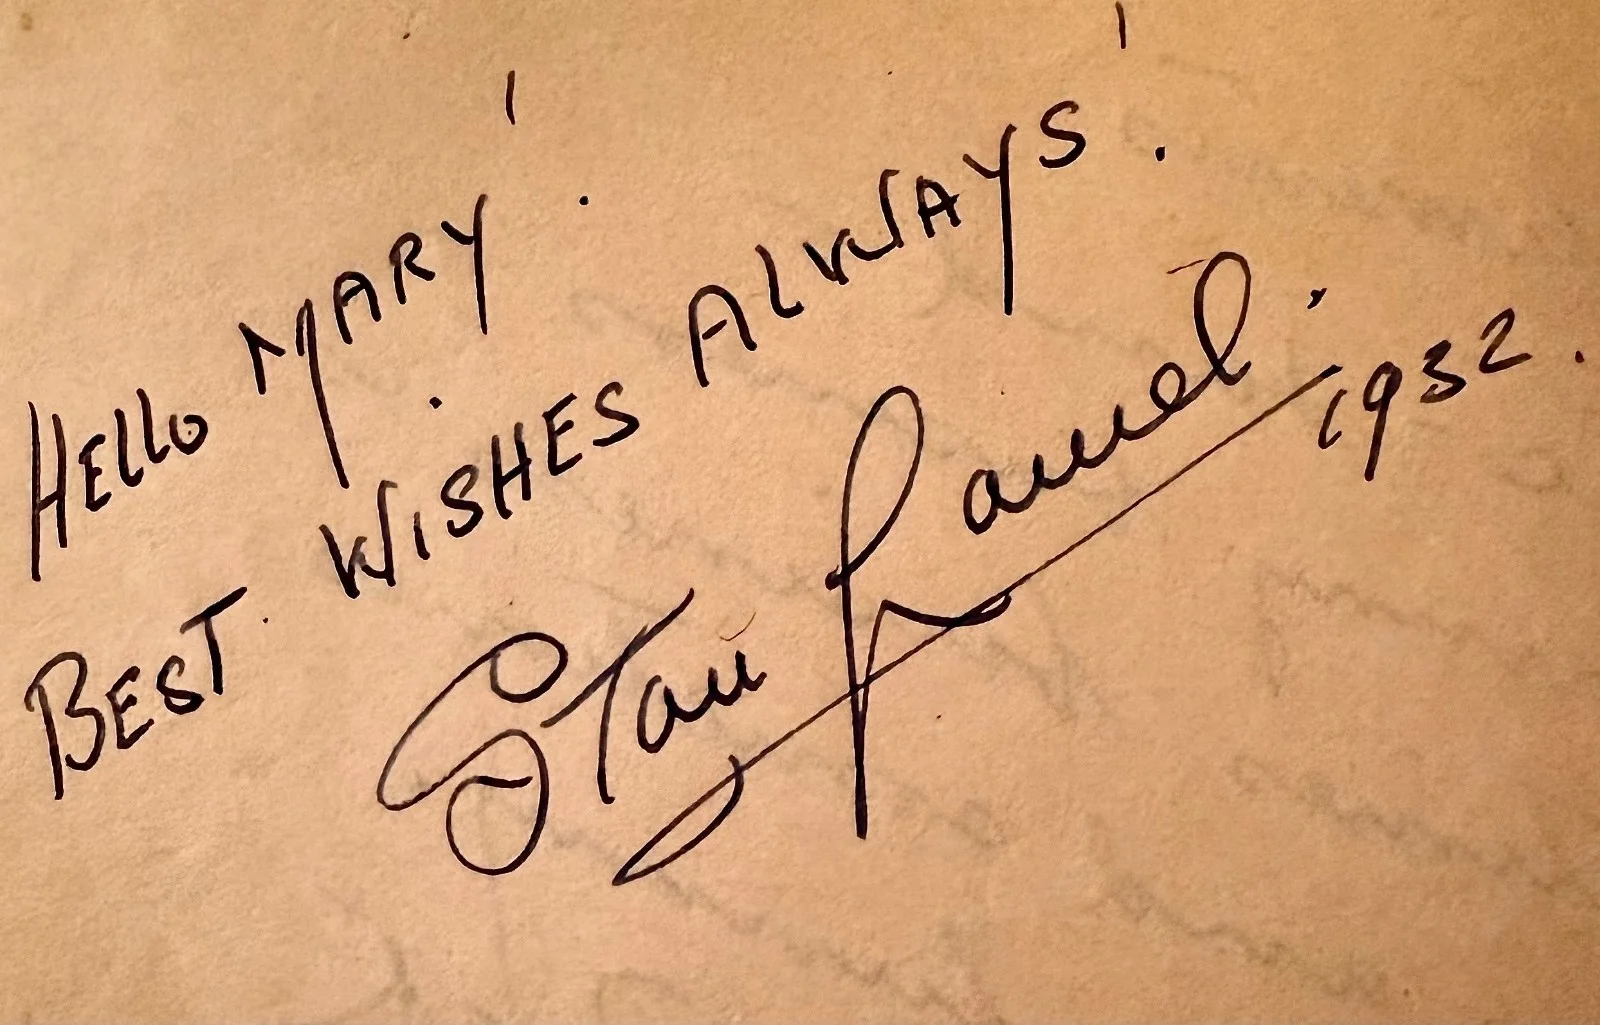 HELLO MARY!
BEST WISHES ALWAYS!
Stan Laurel.
1932.